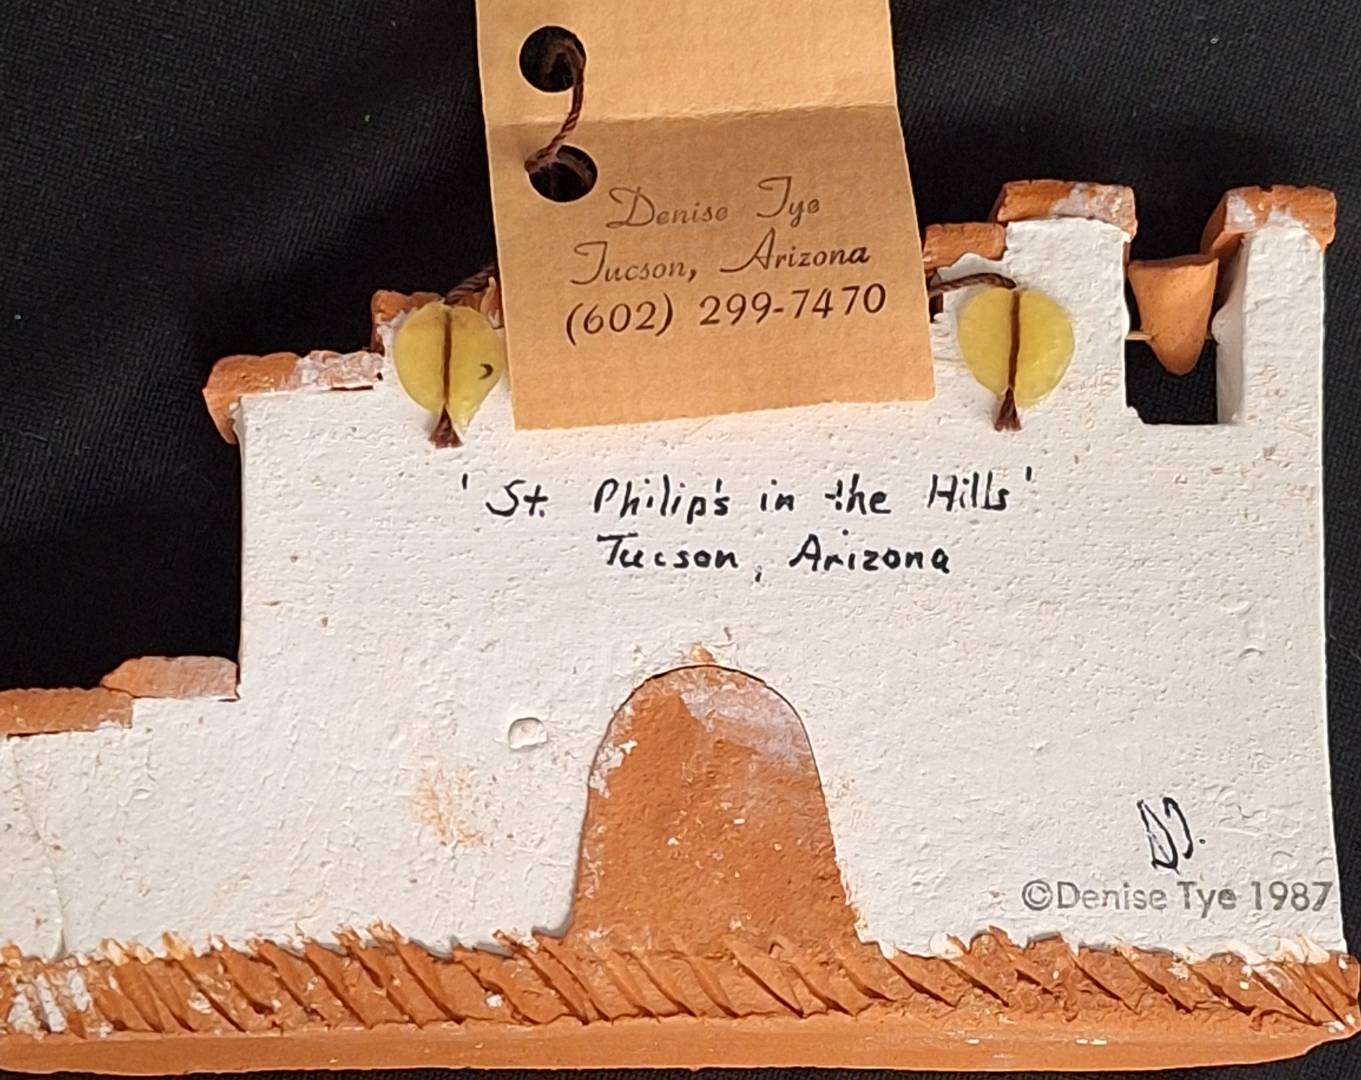 Denise Tye
Tucson, Arizona
(602) 299-7470
'St. Philip's in the Hills'
Tucson, Arizona
DJ.
©Denise Tye 1987